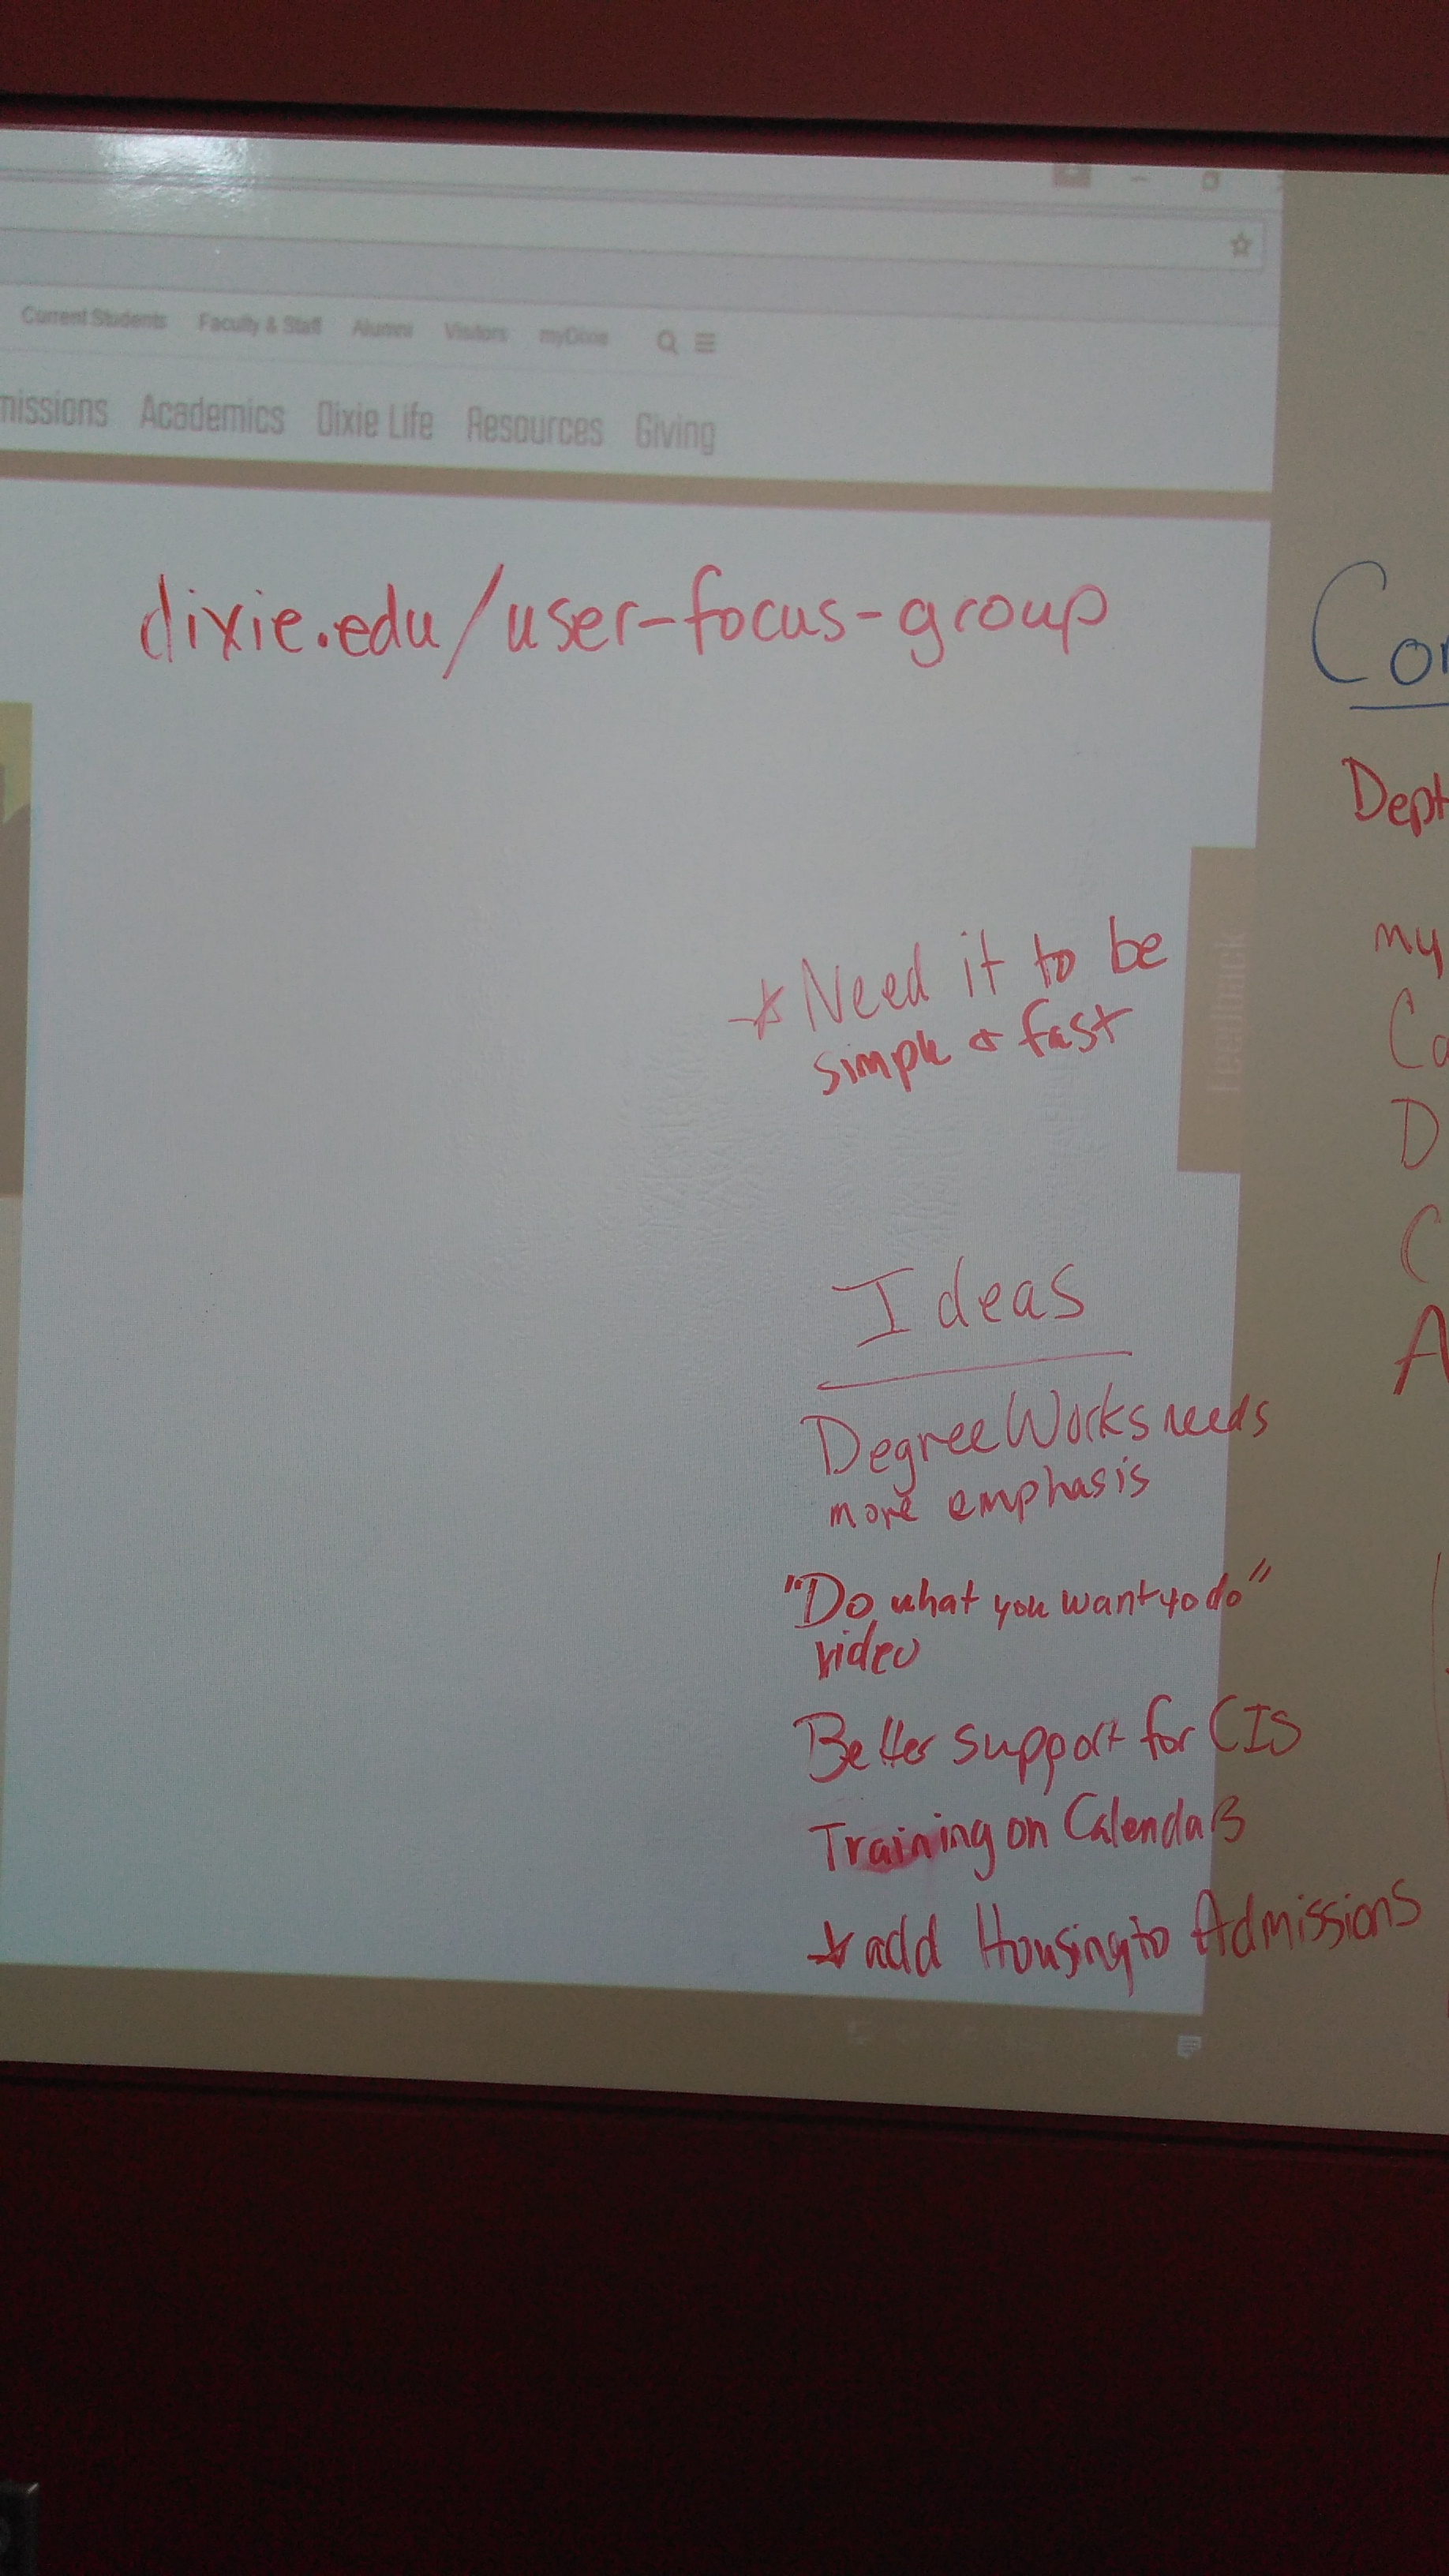 Current Students Faculty & Staff Alumni Visitors myDixie
missions Academics Dixie Life Resources Giving
dixie.edu/user-focus-group
Con
Dept
* Need it to be
simple & fast
Feedback
my
Ca
D
C
A
Ideas
DegreeWorks needs
more emphasis
"Do what you want to do"
video
Better support for CIS
Training on Calendars
* add Housing to Admissions